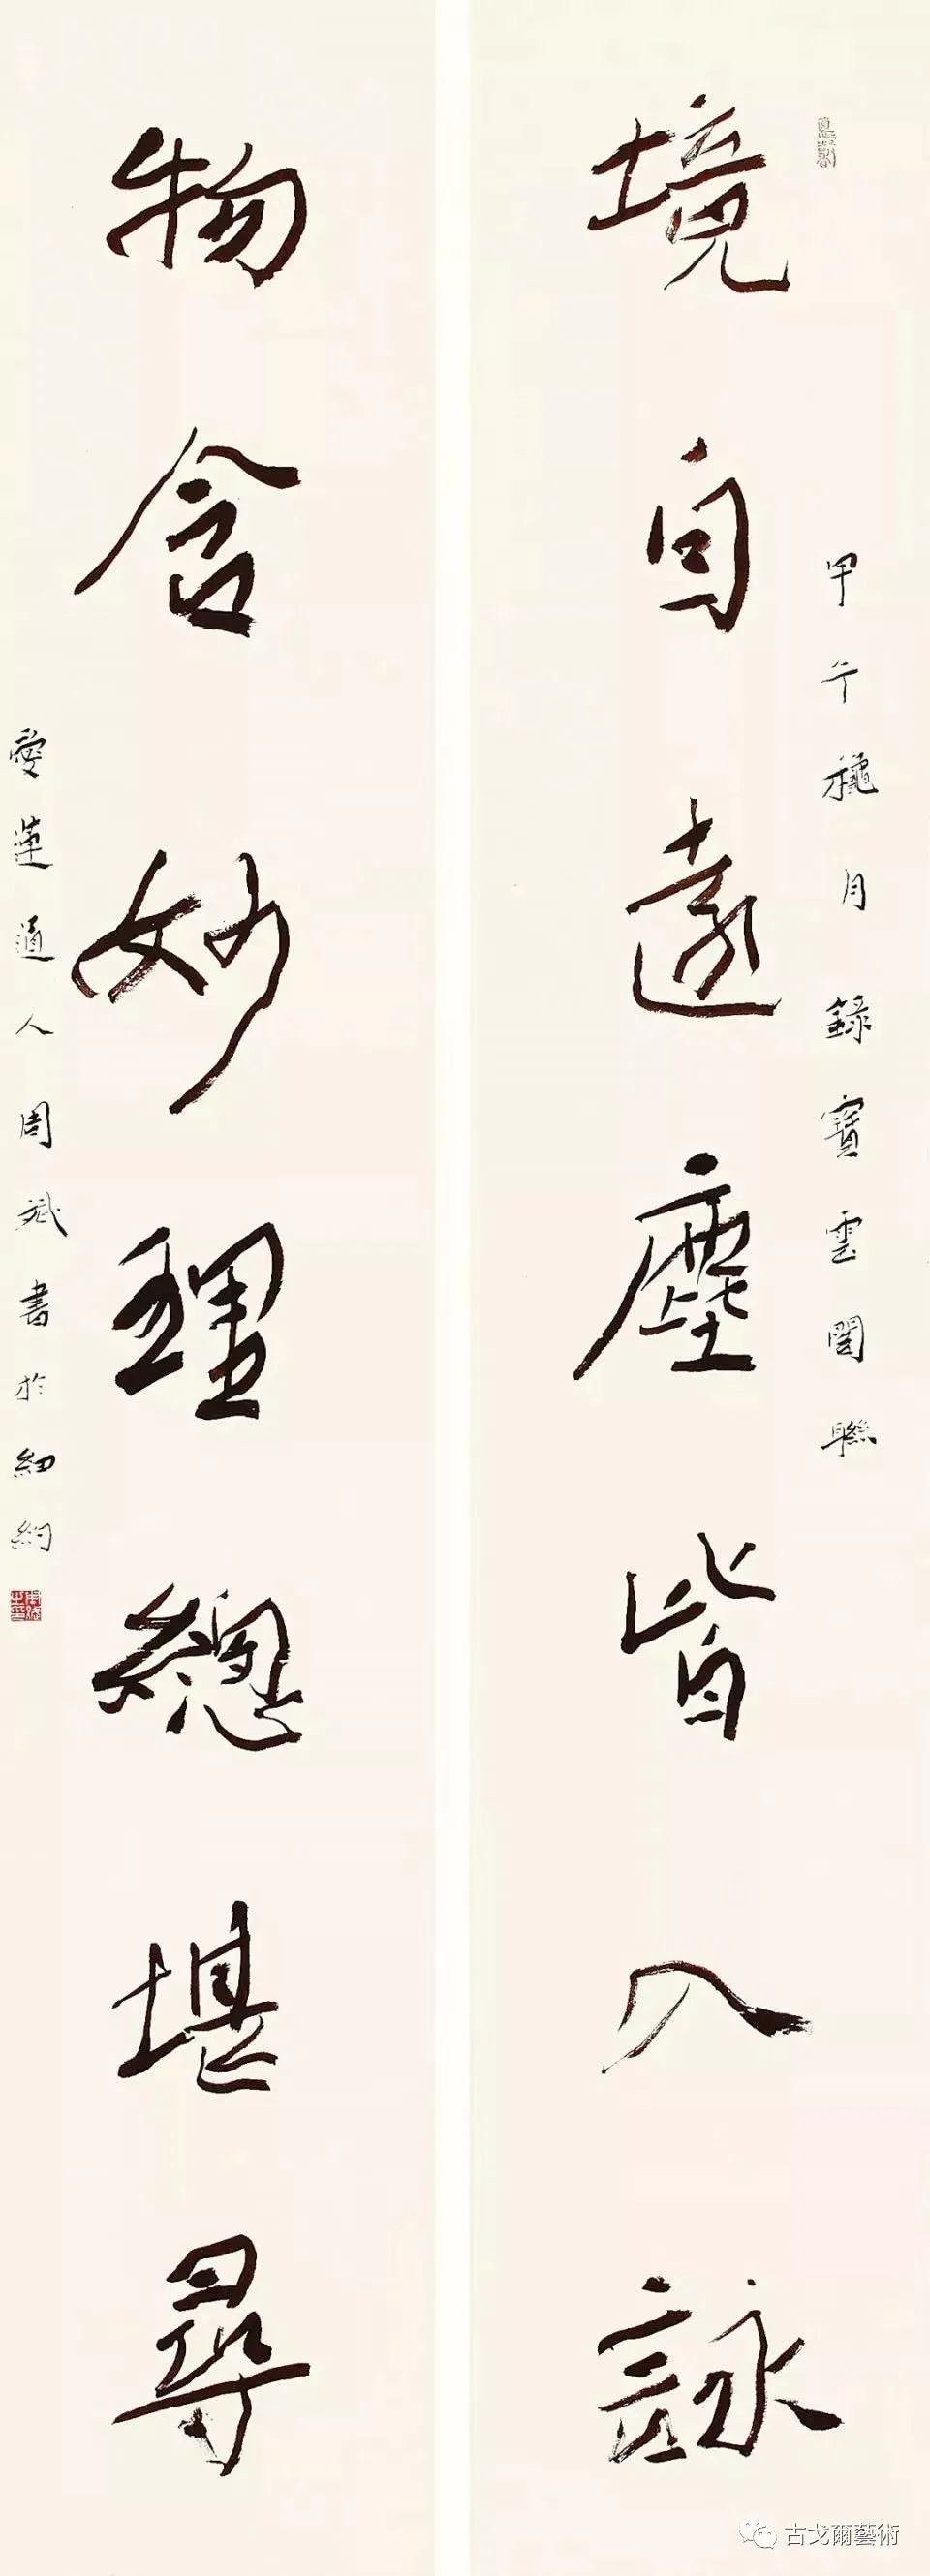 境自遠塵皆入詠
甲午穐月錄寶雲閣聯
物含妙理總堪尋
愛蓮道人周斌書於紐約
古戈爾藝術